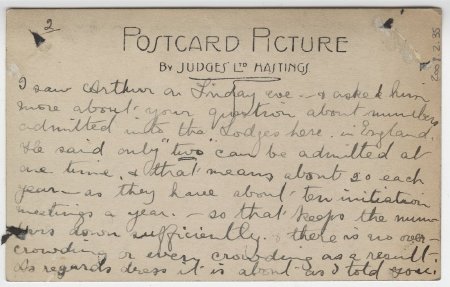 2
POSTCARD PICTURE
BY JUDGES LTD HASTINGS
2009.2.35
I saw Arthur on Sunday eve - & asked him
more about your question about numbers
admitted into the Lodges here in England.
He said only "two" can be admitted at
one time, & that means about 20 each
year - as they have about ten initiation
meetings a year. - so that keeps the num-
bers down sufficiently. & there is no over-
crowding or even crowding as a result.
As regards dress it is about as I told you.